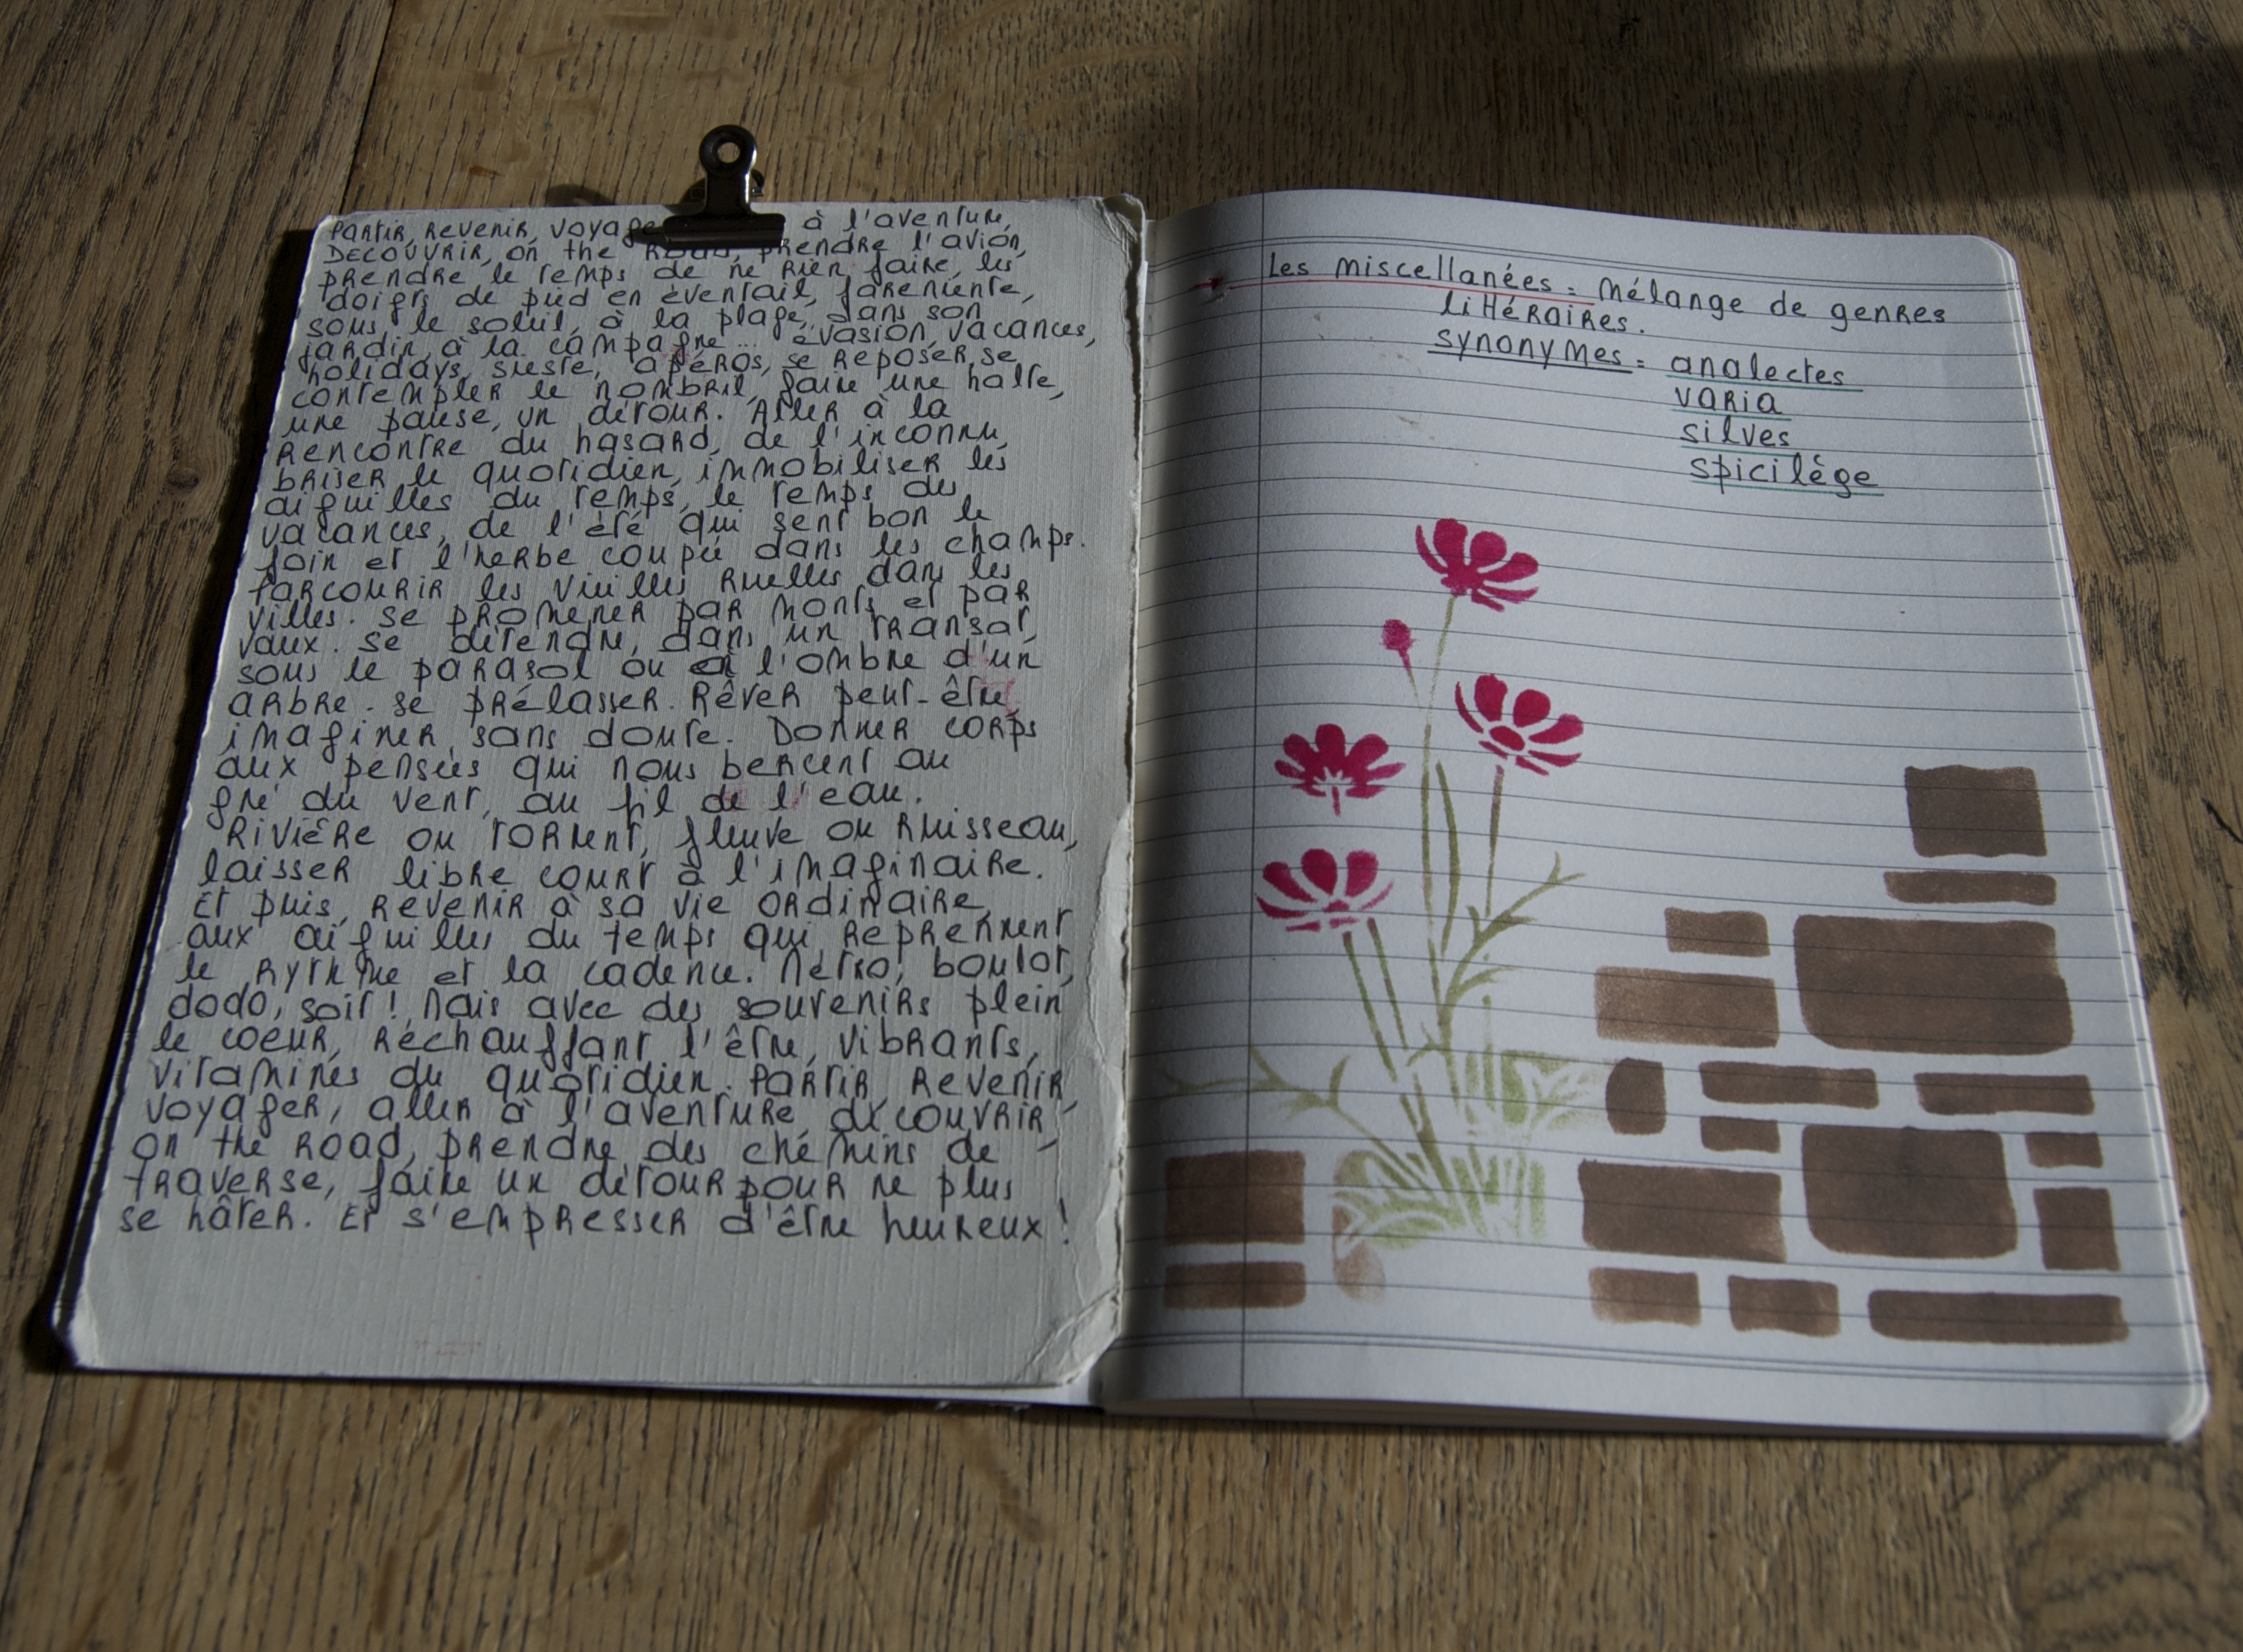 Partir, revenir, voyage à l'aventure,
DECOUVRIR, on the ROAD, prendre l'avion,
prendre le temps de ne rien faire, les
doigts de pied en éventail, fareniente,
sous le soleil, à la plage, dans son
jardin, à la campagne... évasion, vacances,
holidays, sieste, apéros, se reposer, se
contempler le nombril, faire une halte,
une pause, un détour. Aller à la
rencontre du hasard, de l'inconnu,
briser le quotidien, immobiliser les
aiguilles du temps, le temps des
vacances, de l'été qui sent bon le
foin et l'herbe coupée dans les champs.
Parcourir les vieilles ruelles dans les
villes. Se promener par monts et par
vaux. Se détendre, dans un transat,
sous le parasol ou à l'ombre d'un
arbre. Se prélasser. Rêver peut-être,
imaginer, sans doute. Donner corps
aux pensées qui nous bercent au
gré du vent, au fil de l'eau.
Rivière ou torrent, fleuve ou ruisseau,
laisser libre court à l'imaginaire.
Et puis, revenir à sa vie ordinaire,
aux aiguilles du temps qui reprennent
le rythme et la cadence. Métro, boulot,
dodo, soit! Mais avec des souvenirs plein
le coeur, réchauffant l'être, vibrants,
vitamines du quotidien. Partir, revenir,
voyager, aller à l'aventure, découvrir,
on the road, prendre des chemins de
traverse, faire un détour pour ne plus
se hâter. Et s'empresser d'être heureux!
Les miscellanées = Mélange de genres
littéraires.
synonymes = analectes
varia
silves
spicilège